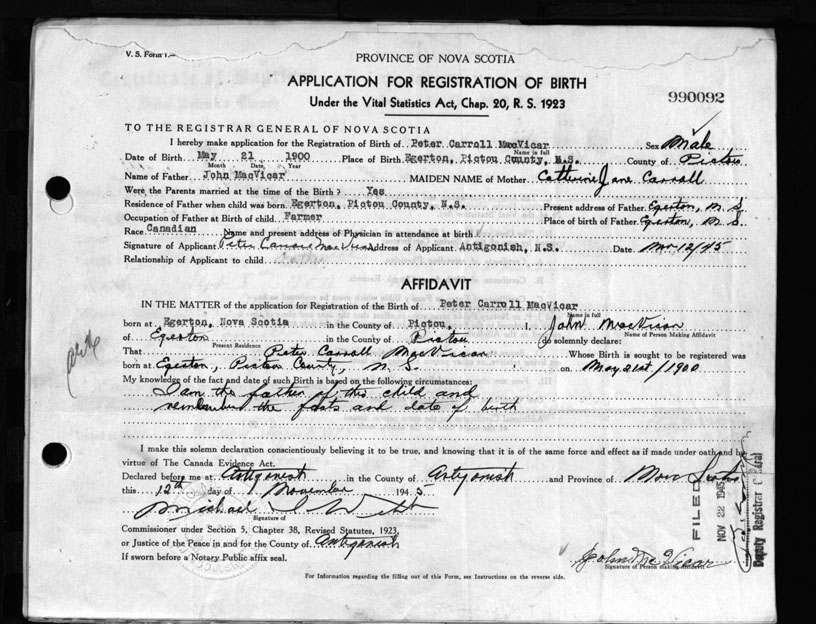 V. S. Form 1.—
PROVINCE OF NOVA SCOTIA
APPLICATION FOR REGISTRATION OF BIRTH
Under the Vital Statistics Act, Chap. 20, R. S. 1923
990092
TO THE REGISTRAR GENERAL OF NOVA SCOTIA
I hereby make application for the Registration of Birth of Peter Carroll MacVicar Sex Male
Name in full
Date of Birth May 21 1900 Place of Birth Egerton, Pictou County, N.S. County of Pictou
Month Date, Year
Name of Father John MacVicar MAIDEN NAME of Mother Catherine Jane Carroll
Were the Parents married at the time of the Birth? Yes
Residence of Father when child was born. Egerton, Pictou County, N.S. Present address of Father. Egerton, N. S.
Occupation of Father at Birth of child. Farmer Place of birth of Father. Egerton, N. S.
Race Canadian Name and present address of Physician in attendance at birth
Signature of Applicant Peter Carroll MacVicar Address of Applicant Antigonish, N.S. Date Nov 12/45
Relationship of Applicant to child
AFFIDAVIT
IN THE MATTER of the application for Registration of the Birth of Peter Carroll MacVicar
Name in full
born at Egerton, Nova Scotia in the County of Pictou, I, John MacVicar
Name of Person Making Affidavit
of Egerton in the County of Pictou do solemnly declare:
Present Residence
That Peter Carroll MacVicar Whose Birth is sought to be registered was
born at Egerton, Pictou County, N. S. on May 21st/1900
My knowledge of the fact and date of such Birth is based on the following circumstances:
I am the father of this child and
remember the facts and date of birth
I make this solemn declaration conscientiously believing it to be true, and knowing that it is of the same force and effect as if made under oath and by
virtue of The Canada Evidence Act.
Declared before me at Antigonish in the County of Antigonish and Province of Nova Scotia
this 12th day of November 1945
Michael
Signature of
Commissioner under Section 5, Chapter 38, Revised Statutes, 1923,
or Justice of the Peace in and for the County of Antigonish
If sworn before a Notary Public affix seal.
John McVicar
Signature of Person making Affidavit
For Information regarding the filling out of this Form, see Instructions on the reverse side.
FILED
NOV 22 1945
Deputy Registrar General